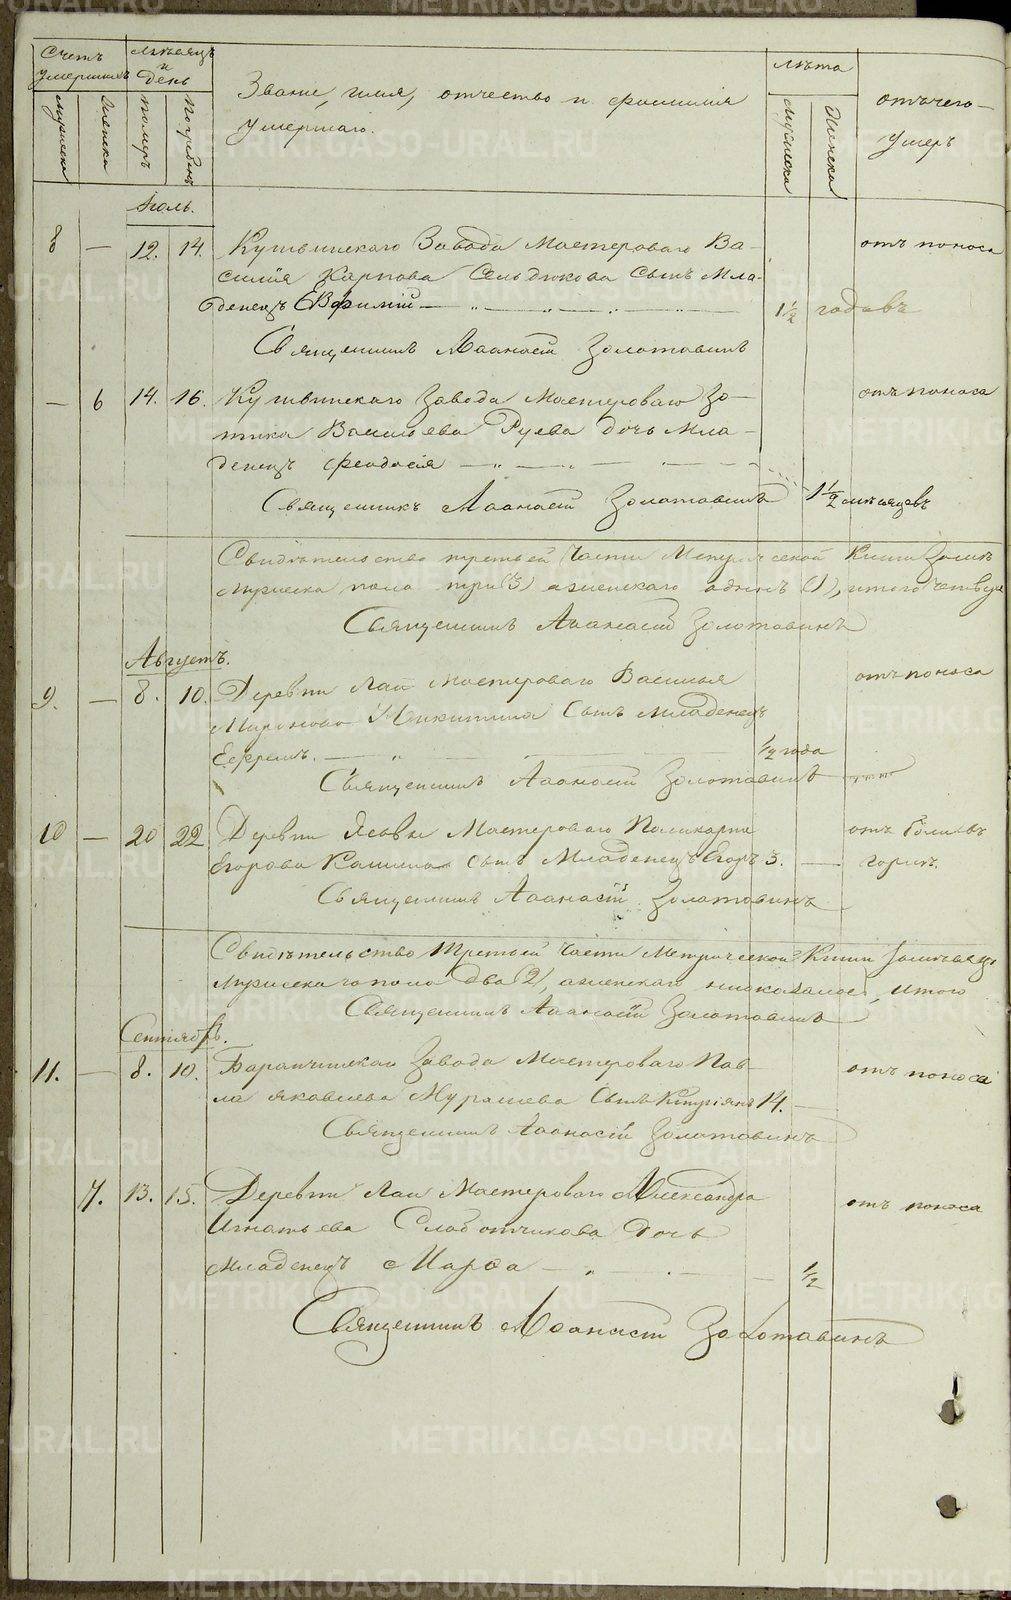 Счетъ умершихъ
Мѣсяцъ и день
Звание, имя, отчество и фамилия
умершаго.
Лѣта
отъ чего
умеръ
мужеска
женска
померъ
погребенъ
мужеска
женска
Июль.
8 — 12. 14. Кушвинскаго Завода Мастероваго Ва-
силия Карпова Сельдюкова сынъ мла-
денецъ Евфимий 1½ годовъ
отъ поноса
Священникъ Афанасий Золотавинъ
— 6 14. 16. Кушвинскаго завода Мастероваго Зо-
тика Васильева Руева дочь мла-
денецъ феодосия 1½ мѣсяцевъ
отъ поноса
Священникъ Афанасий Золотавинъ
Свидѣтельство третьей части Метрической Книги
мужеска пола три (3) а женскаго одинъ (1), итого
Священникъ Афанасий Золотавинъ
Августъ.
9. — 8. 10. Деревни Лаи мастероваго Василья
Миронова Никитина сынъ младенецъ
Ефремъ. ½ года
отъ поноса
Священникъ Афанасий Золотавинъ
10 — 20 22 Деревни Мастероваго Поликарпа
Егорова сынъ Младенецъ Егоръ 3. —
отъ
горяч.
Священникъ Афанасий Золотавинъ
Свидѣтельство Третьей части Метрической Книги
Мужескаго пола два (2), а женскаго итого
Священникъ Афанасий Золотавинъ
Сентябрь.
11. — 8. 10. Баранчинскаго завода Мастероваго Пав-
ла Яковлева Мурашева сынъ Киприянъ 14. —
отъ поноса
Священникъ Афанасий Золотавинъ
7. 13. 15. Деревни Лаи Мастероваго Александра
Игнатьева Слаботчикова дочь
младенецъ Марфа ½
отъ поноса
Священникъ Афанасий Золотавинъ
METRIKI.GASO-URAL.RU